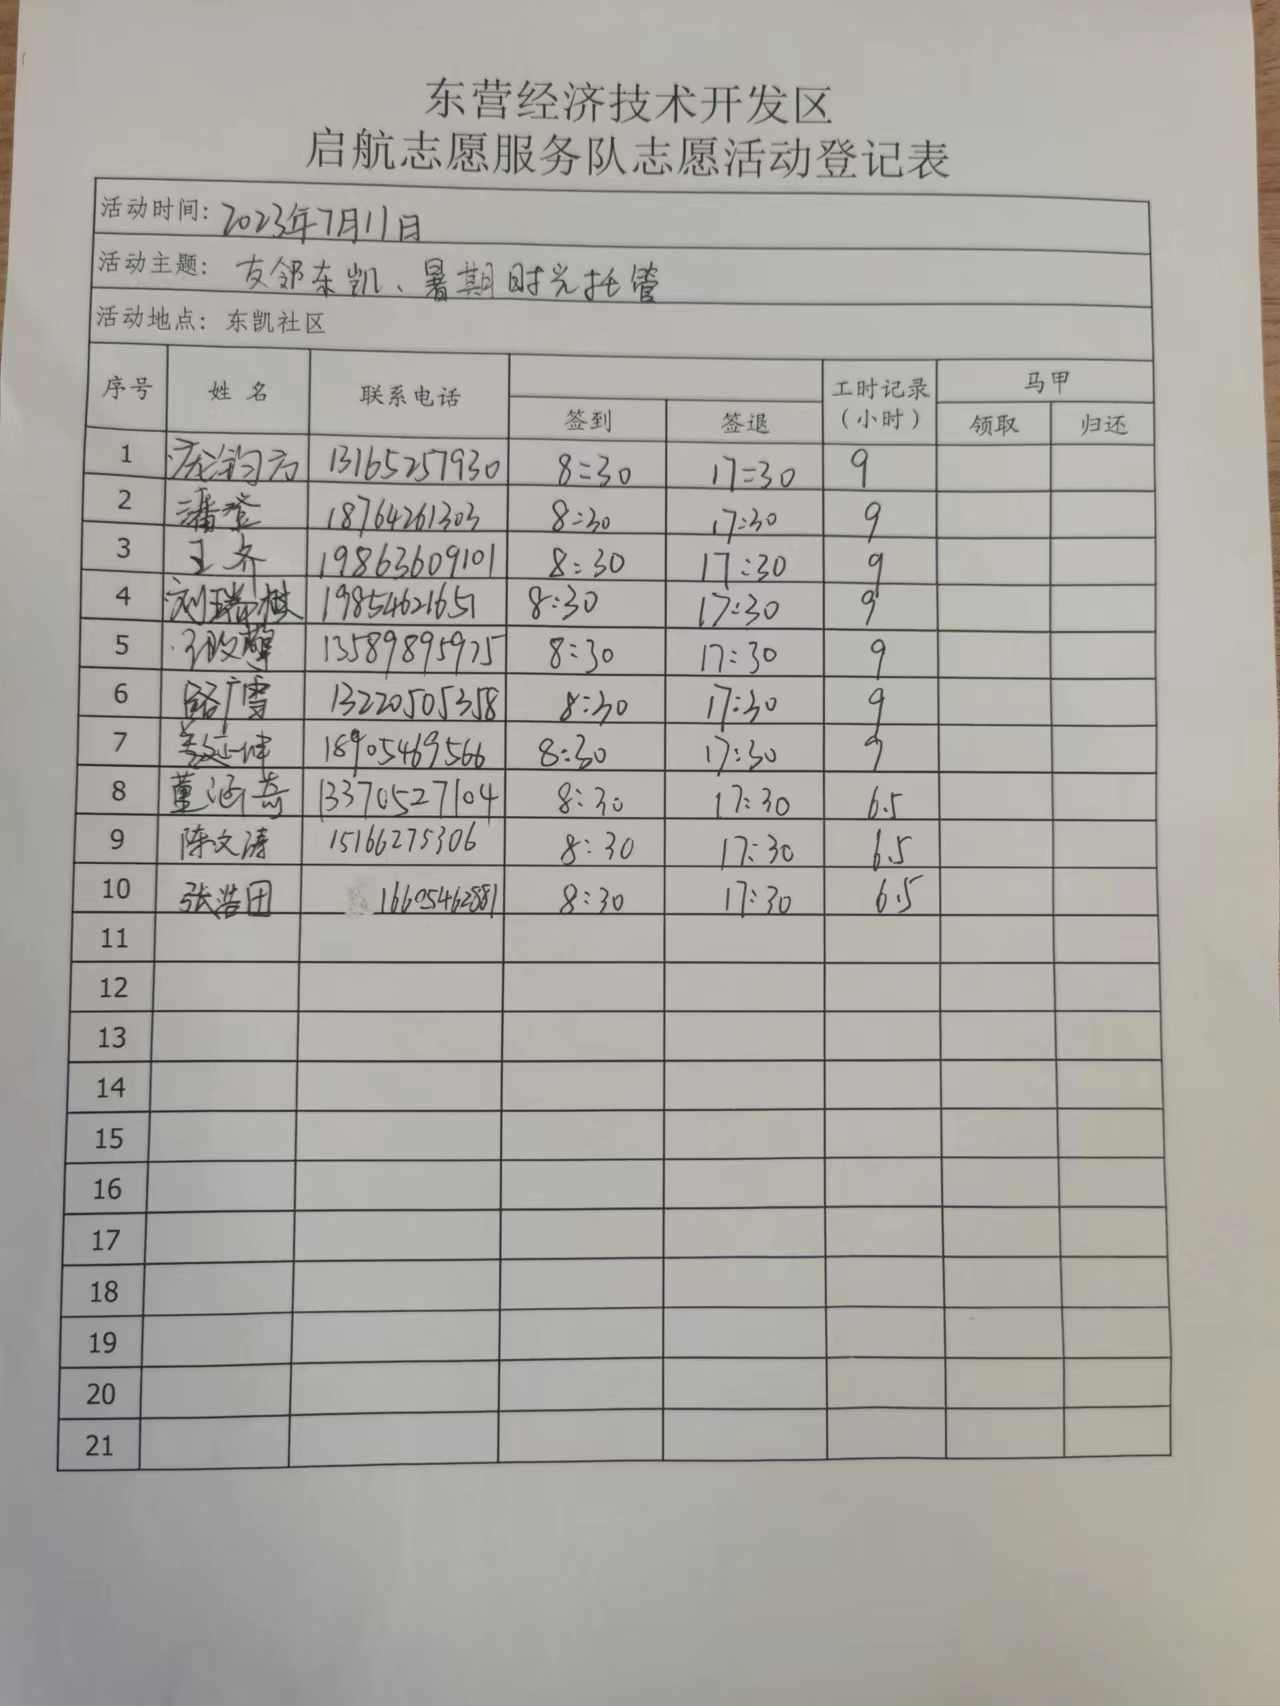 东营经济技术开发区
启航志愿服务队志愿活动登记表
活动时间: 2023年7月11日
活动主题: 友邻东凯、暑期时光托管
活动地点: 东凯社区
序号 姓名 联系电话 签到 签退 工时记录(小时) 马甲 领取 归还
1 13165257930 8:30 17:30 9
2 潘登 18764261303 8:30 17:30 9
3 王齐 19863609101 8:30 17:30 9
4 刘瑞樾 19854621651 8:30 17:30 9
5 13589895975 8:30 17:30 9
6 路广雪 13220505358 8:30 17:30 9
7 18905469566 8:30 17:30 9
8 董涵奇 13370527104 8:30 17:30 6.5
9 陈文涛 15166275306 8:30 17:30 6.5
10 张浩田 16605462881 8:30 17:30 6.5
11
12
13
14
15
16
17
18
19
20
21